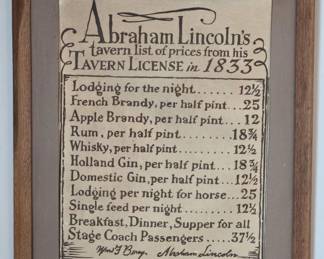 Abraham Lincoln's
tavern list of prices from his
TAVERN LICENSE in 1833
Lodging for the night....... 12½
French Brandy, per half pint...25
Apple Brandy, per half pint... 12
Rum, per half pint...... 18¾
Whisky, per half pint..... 12½
Holland Gin, per half pint... 18¾
Domestic Gin, per half pint...12½
Lodging per night for horse...25
Single feed per night...... 12½
Breakfast, Dinner, Supper for all
Stage Coach Passengers .... 37½
Wm F Berry. Abraham Lincoln